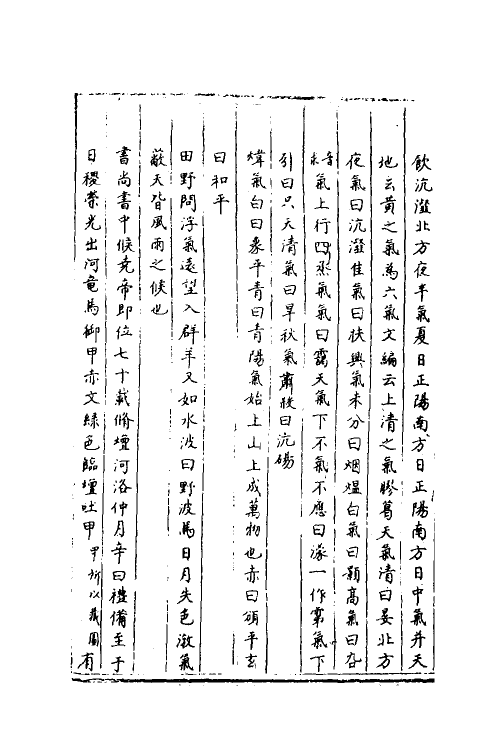 飲沆瀣北方夜半氣夏日正陽南方日正陽南方日中氣并天
地玄黃之氣為六氣文編云上清之氣膠葛天氣清曰晏北方
夜氣曰沆瀣佳氣曰扶輿氣未分曰烟煴白氣曰顥高氣曰
氣上行四氣氣曰靄天氣下不氣不應曰濛一作雺氣下
引曰只天清氣曰旻秋氣肅殺曰沆碭
煒氣白曰象平青曰青陽氣始上山上成萬物也赤曰頌平玄
曰和平
田野間浮氣遠望入群羊又如水波曰野波馬日月失色激氣
蔽天皆風雨之候也
書尚書中候堯帝即位七十載脩壇河洛仲月辛曰禮備至于
日稷榮光出河竜馬御甲赤文綠色臨壇吐甲甲所以裁圖有